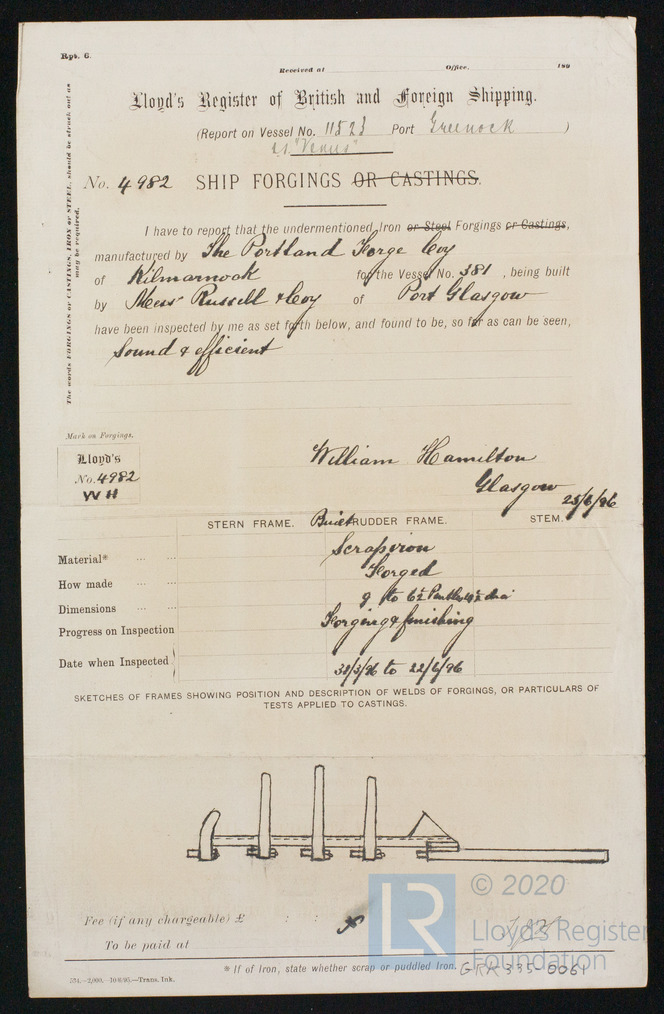 Rpt. 6.
Received at Office. 189
Lloyd's Register of British and Foreign Shipping.
(Report on Vessel No. 11523 Port Greenock )
"Venus"
No. 4982 SHIP FORGINGS OR CASTINGS.
I have to report that the undermentioned Iron or Steel Forgings or Castings,
manufactured by The Portland Forge Coy
of Kilmarnock for the Vessel No. 381, being built
by Mess Russell & Coy of Port Glasgow
have been inspected by me as set forth below, and found to be, so far as can be seen,
Sound & efficient
The words FORGINGS or CASTINGS, IRON or STEEL, should be struck out as
may be required.
Mark on Forgings.
Lloyd's
No. 4982
WH
William Hamilton
Glasgow
25/6/96
STERN FRAME. Built RUDDER FRAME. STEM.
Material* Scrap iron
How made Forged
Dimensions 9 to 6½ Pintles 4½ dia
Progress on Inspection Forging & finishing
Date when Inspected 30/3/96 to 22/6/96
SKETCHES OF FRAMES SHOWING POSITION AND DESCRIPTION OF WELDS OF FORGINGS, OR PARTICULARS OF
TESTS APPLIED TO CASTINGS.
Fee (if any chargeable) £ : :
To be paid at
* If of Iron, state whether scrap or puddled Iron.
GRK335-0061
574.—2,000.—10/6/95.—Trans. Ink.
LR
© 2020
Lloyd's Register
Foundation